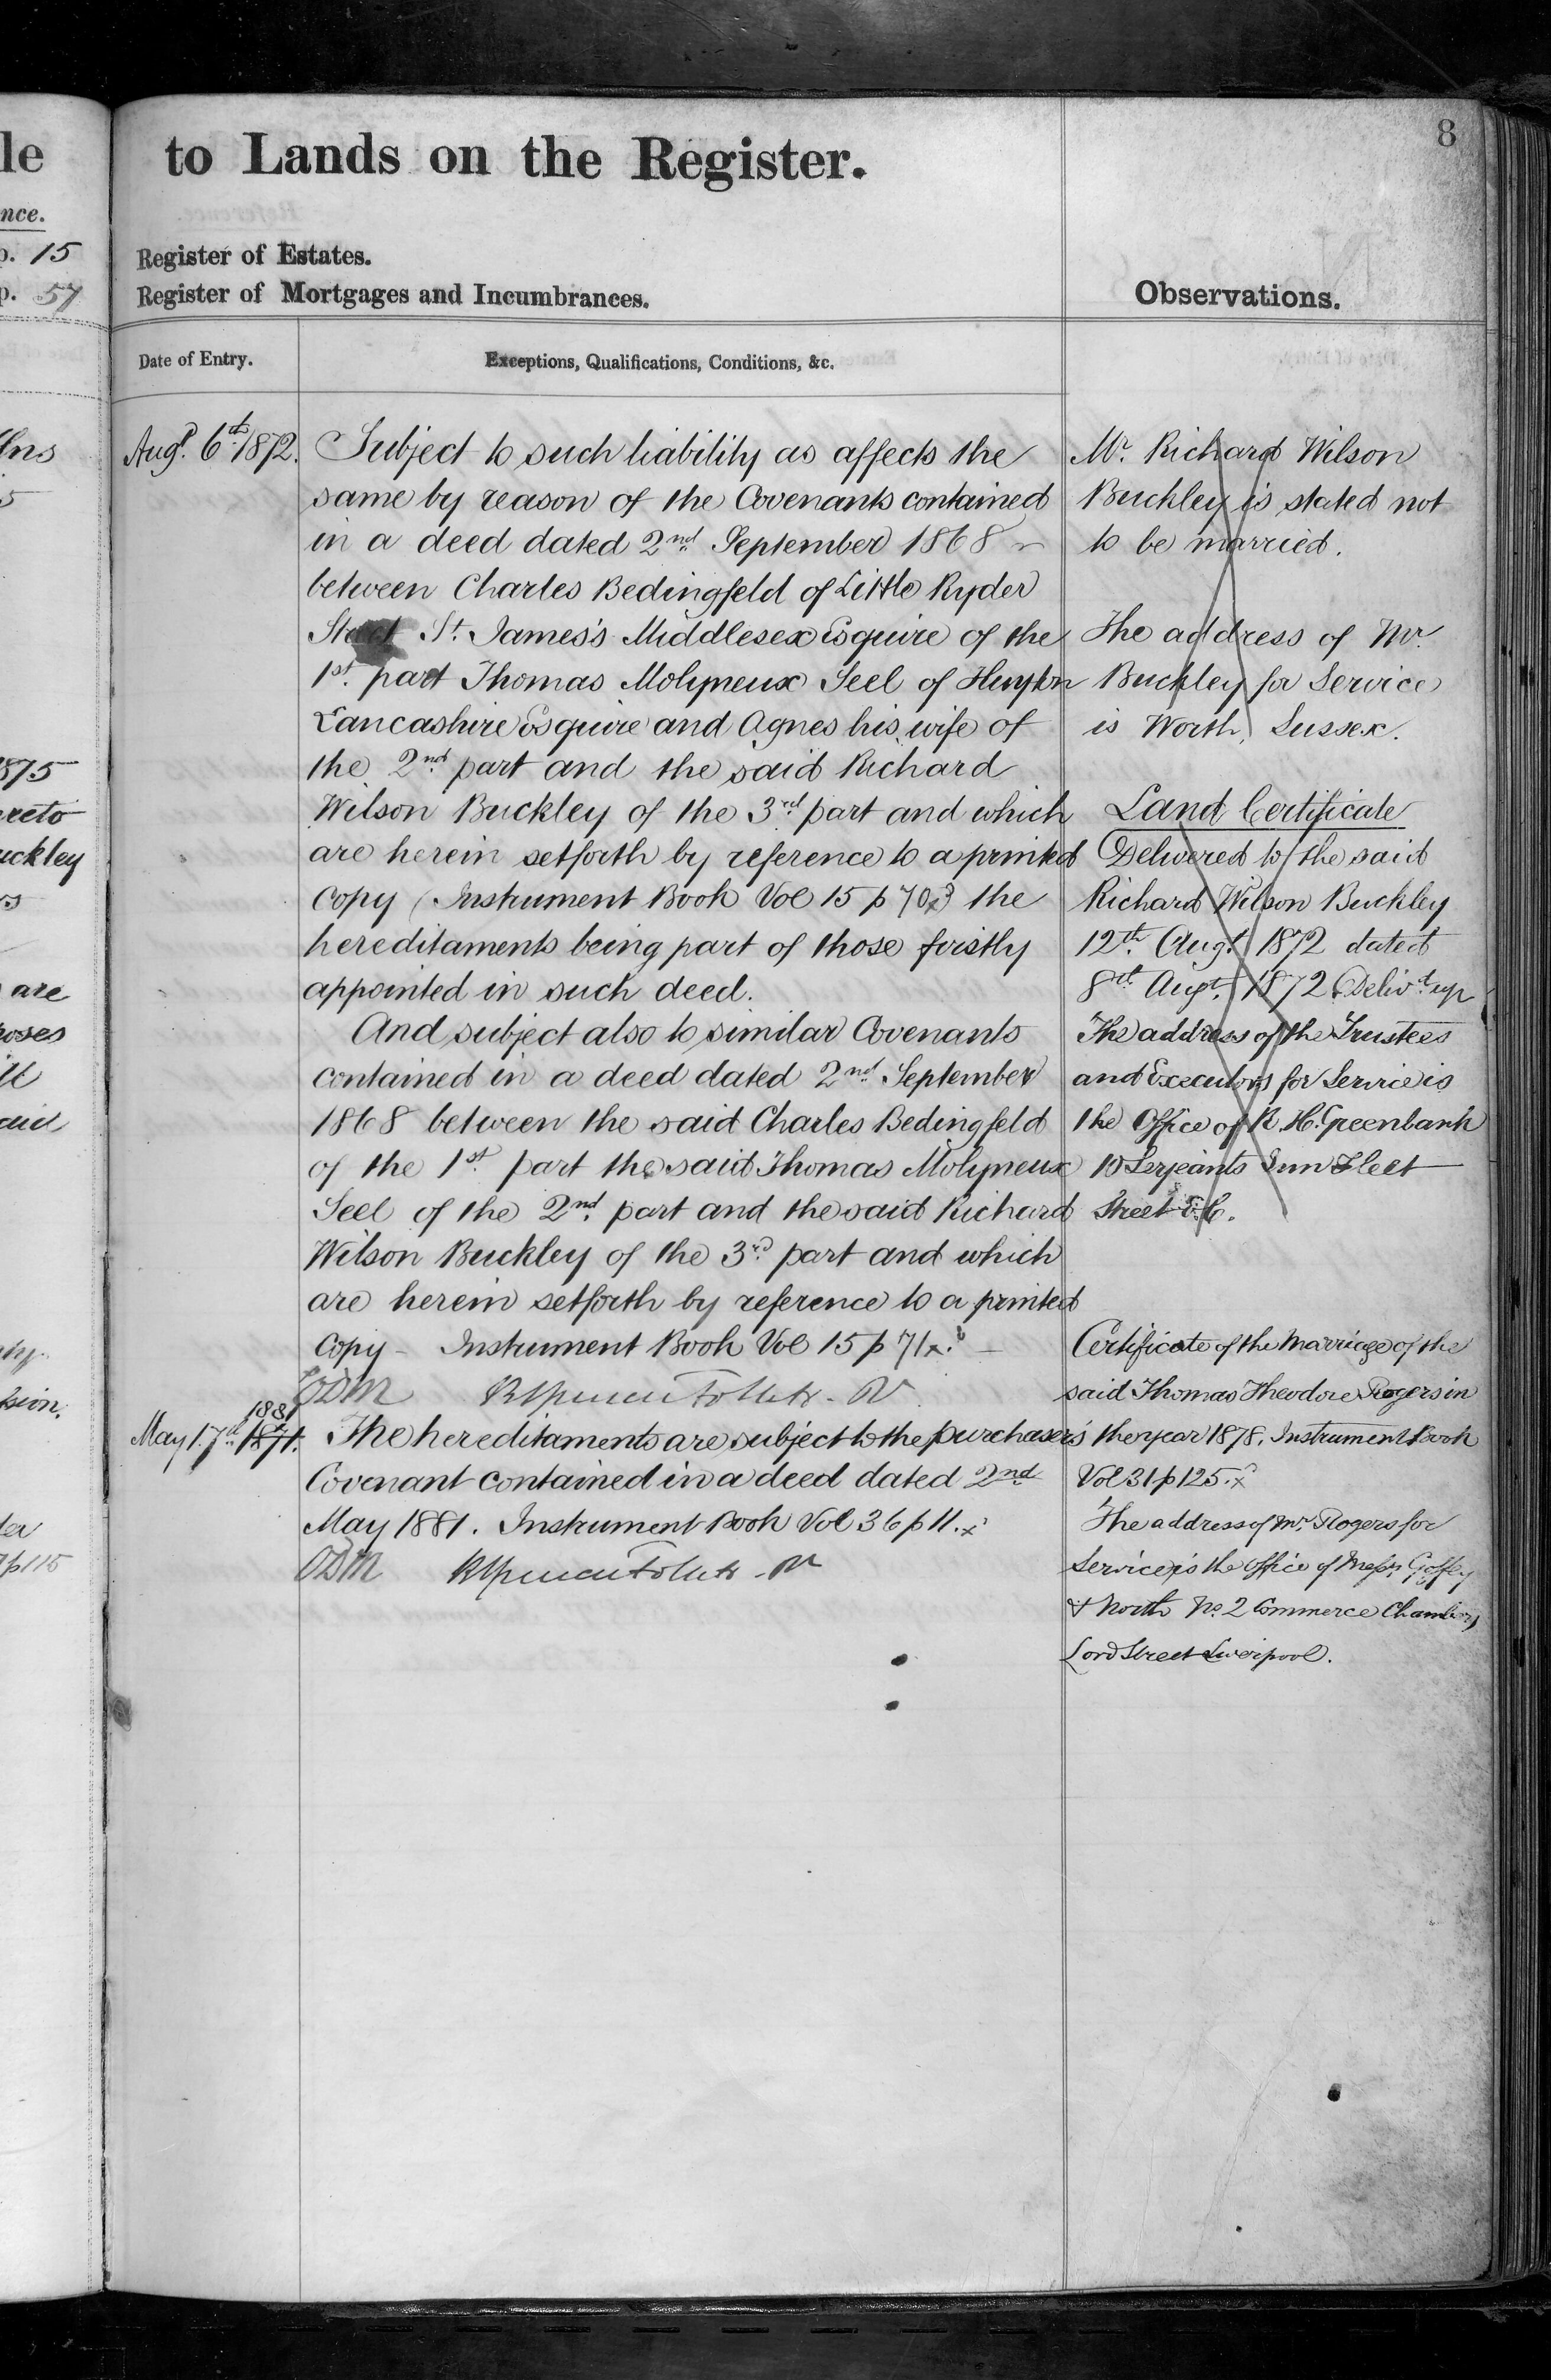 le
nce.
p. 15
p. 57
1875
reto
uckley
are
poses
aid
sion.
p 115
8
to Lands on the Register.
Register of Estates.
Register of Mortgages and Incumbrances.
Date of Entry.
Exceptions, Qualifications, Conditions, &c.
Augt. 6th 1872.
Subject to such liability as affects the
same by reason of the Covenants contained
in a deed dated 2nd September 1868
between Charles Bedingfeld of Little Ryder
Street St. James's Middlesex Esquire of the
1st. part Thomas Molyneux Seel of Huyton
Lancashire Esquire and Agnes his wife of
the 2nd part and the said Richard
Wilson Buckley of the 3rd part and which
are herein setforth by reference to a printed
copy (Instrument Book Vol 15 p 70x) the
hereditaments being part of those firstly
appointed in such deed.
And subject also to similar Covenants
contained in a deed dated 2nd September
1868 between the said Charles Bedingfeld
of the 1st. part the said Thomas Molyneux
Seel of the 2nd. part and the said Richard
Wilson Buckley of the 3rd part and which
are herein setforth by reference to a printed
copy - Instrument Book Vol 15 p 71x.
1881
May 17th 1871.
The hereditaments are subject to the purchaser's
Covenant contained in a deed dated 2nd
May 1881. Instrument Book Vol 36 p 11.x
Observations.
Mr. Richard Wilson
Buckley is stated not
to be married.
The address of Mr.
Buckley for Service
is Worth, Sussex.
Land Certificate
Delivered to the said
Richard Wilson Buckley
12th. Augt. 1872 dated
8th Augt. 1872. Deliv.d up
The address of the Trustees
and Executors for Service is
the Office of R. H. Greenbank
10 Serjeants Inn Fleet
Street E.C.
Certificate of the Marriage of the
said Thomas Theodore Rogers in
the year 1878. Instrument Book
Vol 31 p 125.x
The address of Mr. Rogers for
Service is the Office of Messrs Goffey
& North No. 2 Commerce Chambers
Lord Street Liverpool.